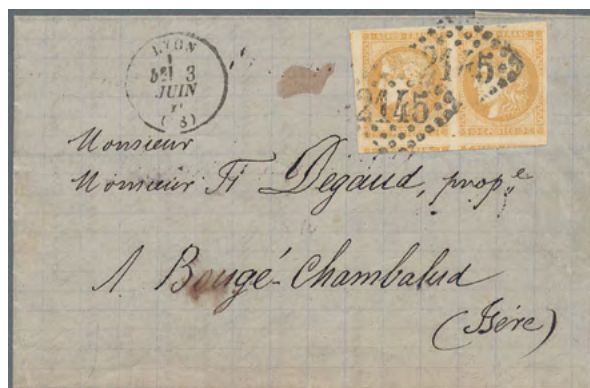 LYON
3
JUIN
2145
2145
Monsieur
Monsieur Fr Degaud, propre
A Bougé-Chambalud
(Isère)